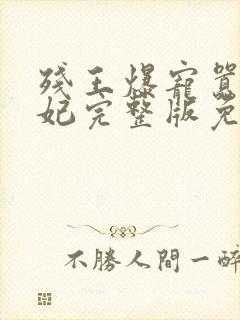 残王爆宠嚣
妃完整版免
不勝人間一醉